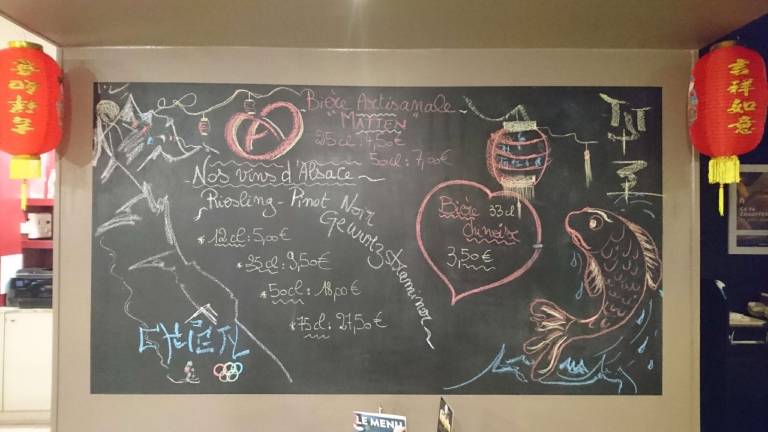 吉祥如意
Bière Artisanale
"MATTEN"
25cl : 4,50€
50cl : 7,00€
Nos vins d'Alsace
Riesling - Pinot Noir
Gewurtzstraminer
* 12cl : 5,00€
* 25cl : 9,50€
* 50cl : 18,00€
* 75cl : 27,50€
Bière 33cl
Chinoise
3,50€
LE MENU